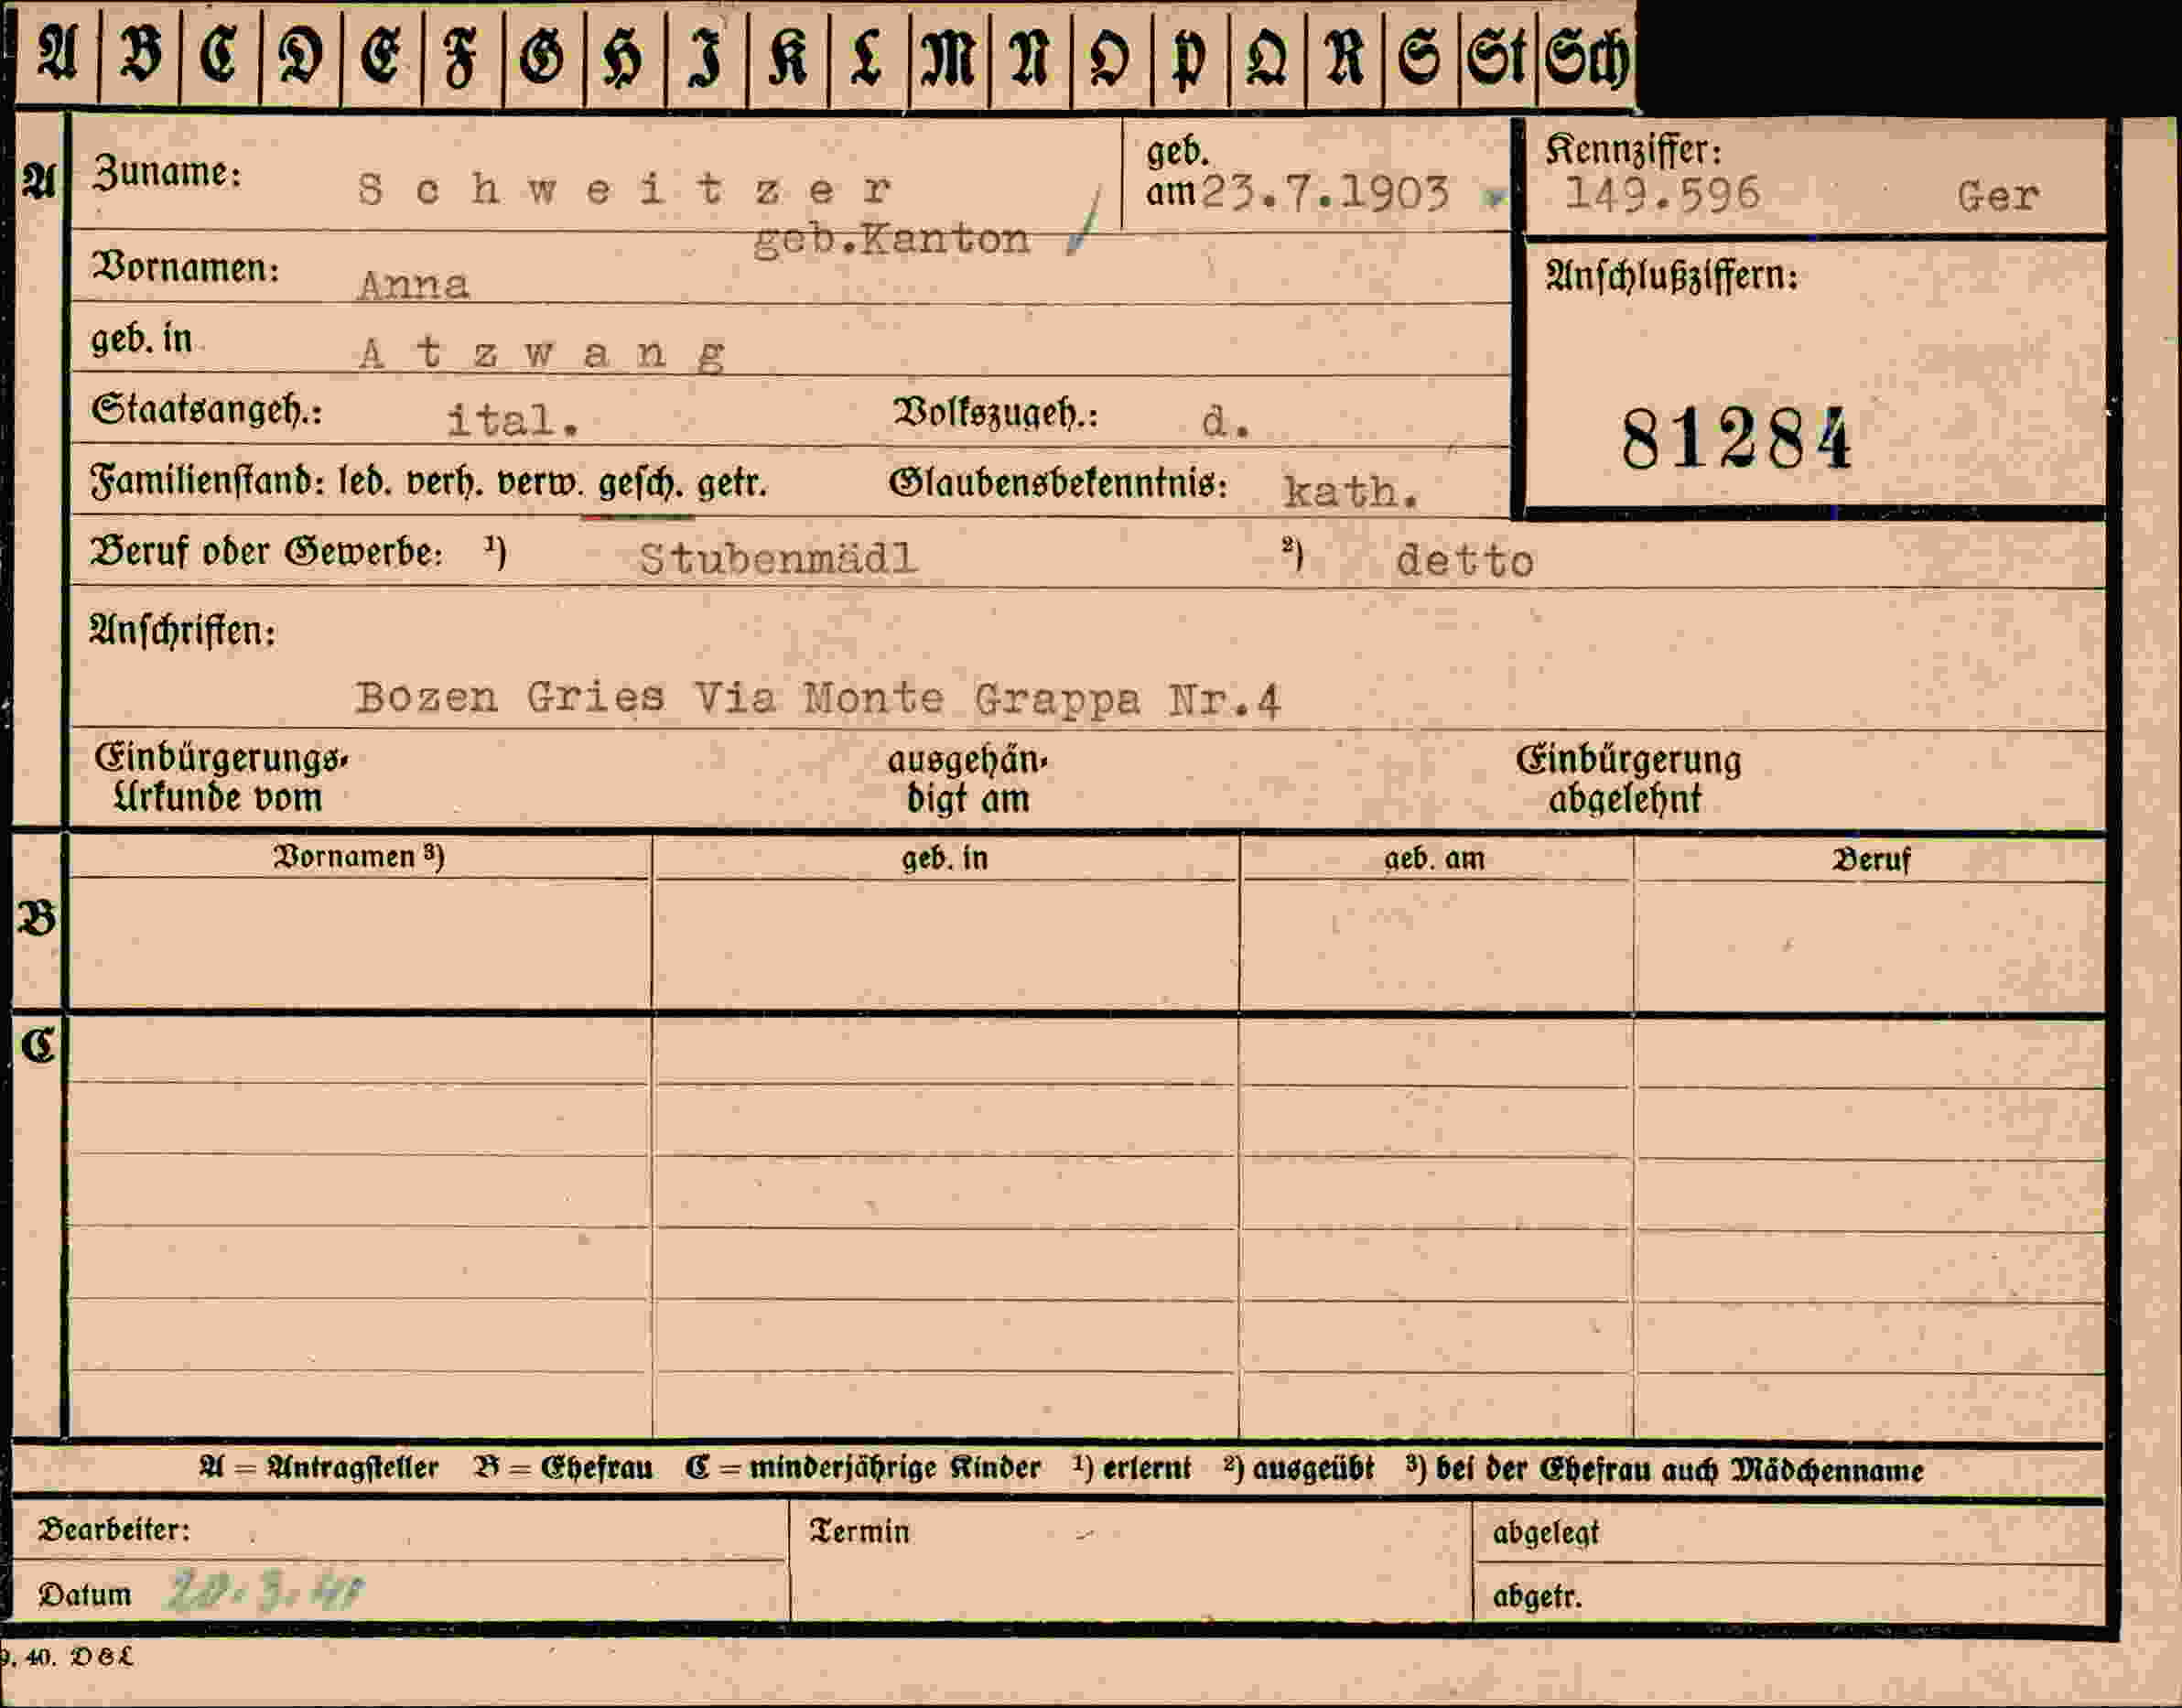 A B C D E F G H I K L M N O P Q R S St Sch
A Zuname: Schweitzer geb. am 23.7.1903 Kennziffer: 149.596 Ger
geb.Kanton
Vornamen: Anna Anschlußziffern:
geb. in Atzwang
Staatsangeh.: ital. Volkszugeh.: d. 81284
Familienstand: led. verh. verw. gesch. getr. Glaubensbekenntnis: kath.
Beruf oder Gewerbe: ¹) Stubenmädl ²) detto
Anschriften:
Bozen Gries Via Monte Grappa Nr.4
Einbürgerungs- ausgehän- Einbürgerung
Urkunde vom digt am abgelehnt
Vornamen ³) geb. in geb. am Beruf
B
C
A = Antragsteller B = Ehefrau C = minderjährige Kinder ¹) erlernt ²) ausgeübt ³) bei der Ehefrau auch Mädchenname
Bearbeiter: Termin abgelegt
Datum 20.3.41 abgetr.
9. 40. D&L